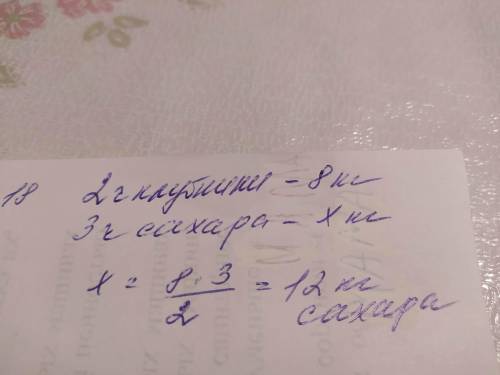 18 2 ч клубники - 8 кг
3 ч сахара - х кг
х = 8 · 3 / 2 = 12 кг
сахара